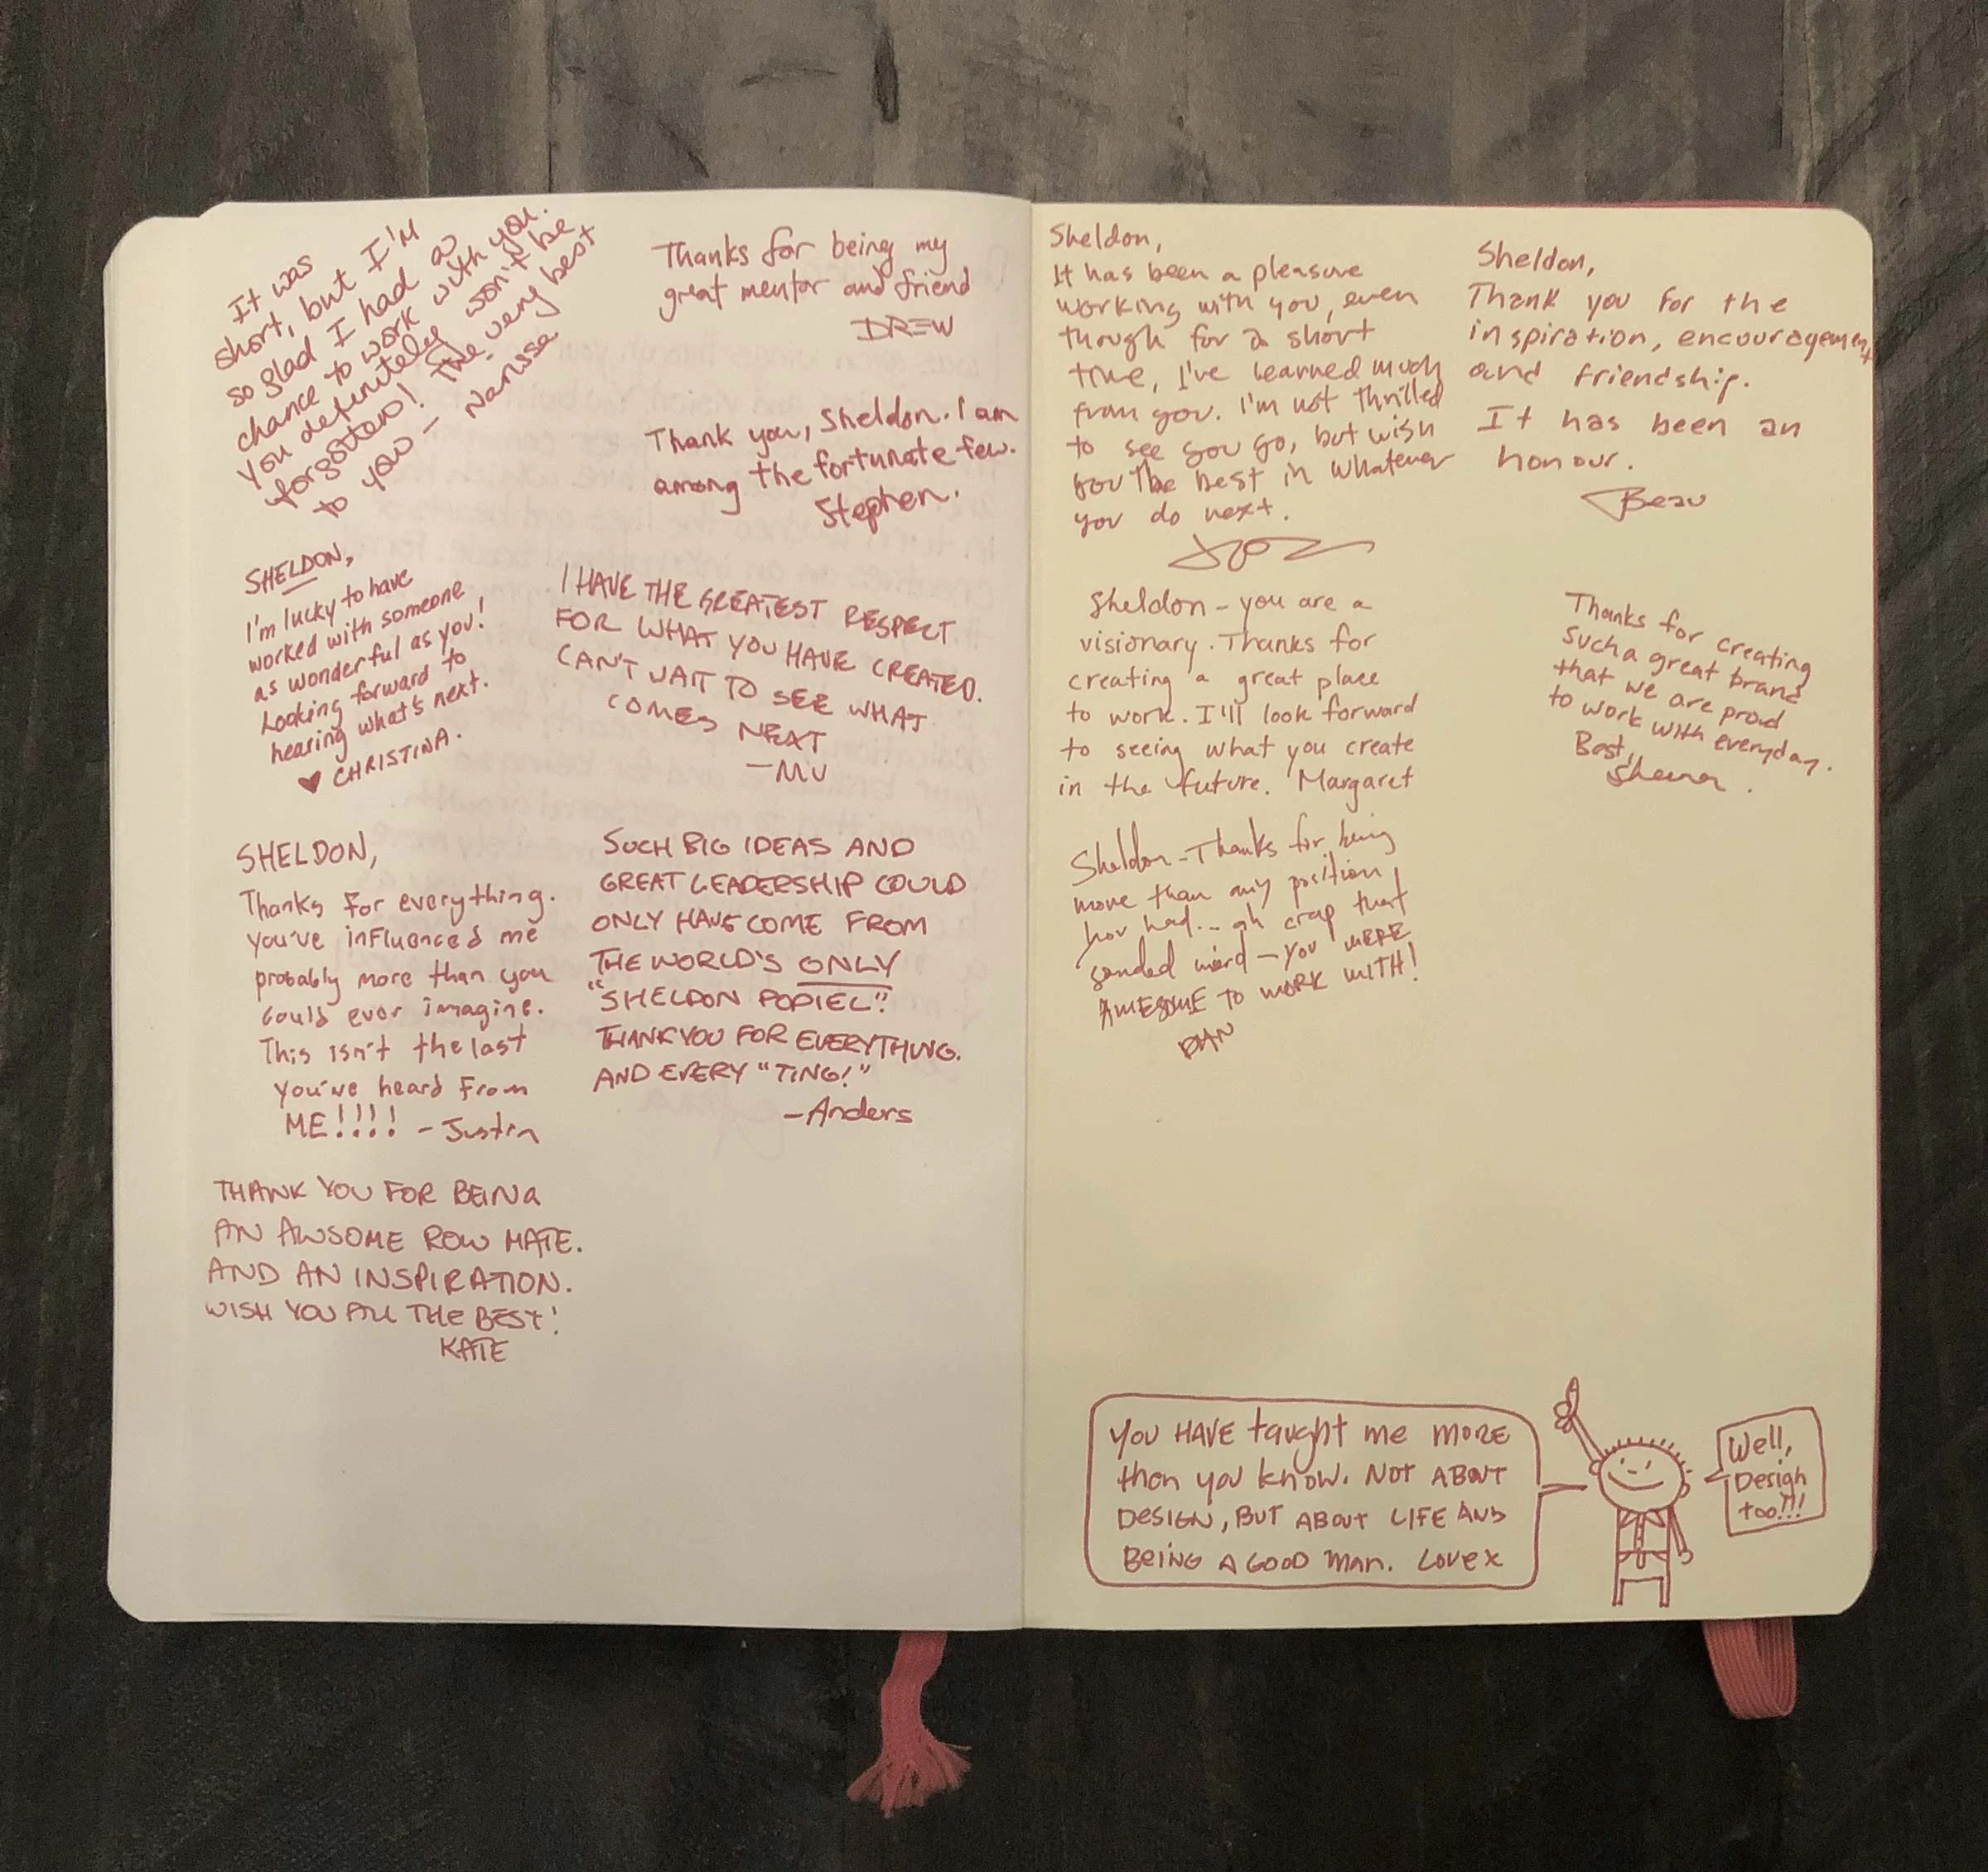 It was
short, but I'm
so glad I had a
chance to work with you.
You definitely won't be
forgotten! The very best
to you – Narisse
Thanks for being my
great mentor and friend
DREW
Thank you, Sheldon. I am
among the fortunate few.
Stephen.
SHELDON,
I'm lucky to have
worked with someone
as wonderful as you!
Looking forward to
hearing what's next.
♥ CHRISTINA.
I HAVE THE GREATEST RESPECT
FOR WHAT YOU HAVE CREATED.
CAN'T WAIT TO SEE WHAT
COMES NEXT
–MV
SHELDON,
Thanks for everything.
You've influenced me
probably more than you
could ever imagine.
This isn't the last
you've heard from
ME!!!! – Justin
SUCH BIG IDEAS AND
GREAT LEADERSHIP COULD
ONLY HAVE COME FROM
THE WORLD'S ONLY
"SHELDON POPIEL".
THANK YOU FOR EVERYTHING.
AND EVERY "TING!"
–Anders
THANK YOU FOR BEING
AN AWSOME ROW MATE.
AND AN INSPIRATION.
WISH YOU ALL THE BEST!
KATE
Sheldon,
It has been a pleasure
working with you, even
though for a short
time, I've learned much
from you. I'm not thrilled
to see you go, but wish
you the best in whatever
you do next.
Sheldon,
Thank you for the
inspiration, encouragement
and friendship.
It has been an
honour.
Beau
Sheldon – you are a
visionary. Thanks for
creating a great place
to work. I'll look forward
to seeing what you create
in the future. Margaret
Thanks for creating
such a great brand
that we are proud
to work with everyday.
Best,
Sheena.
Sheldon – Thanks for being
more than any position
you had... oh crap that
sounded weird – you WERE
AWESOME TO WORK WITH!
DAN
YOU HAVE taught me MORE
than you know. NOT ABOUT
DESIGN, BUT ABOUT LIFE AND
BEING A GOOD MAN. LOVE x
Well,
Design
too!!!